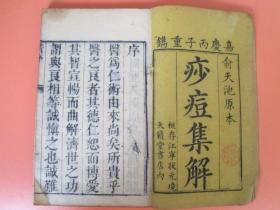 嘉慶丙子重鐫
俞天池原本
痧痘集解
板存江寧狀元境
堂書店內
序
醫爲仁術由來尚矣所貴乎
醫之良者其德仁恕而博愛
其智宣暢而曲解濟世之功
謂與良相等誠慎之也誠難